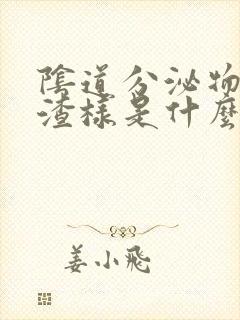 陰道分泌物
渣樣是什麼
姜小飛